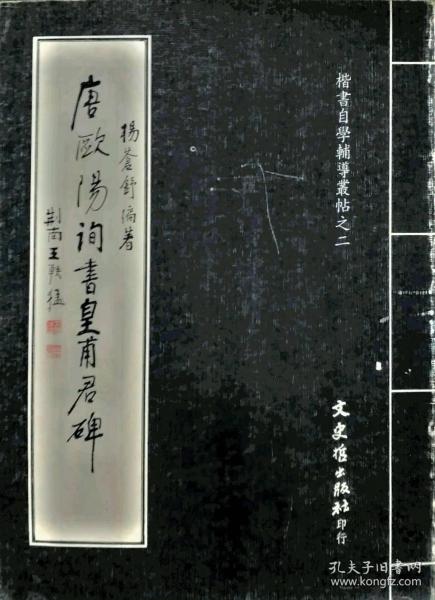 楷書自學輔導叢帖之二
文史哲出版社印行
楊蒼舒編著
唐歐陽詢書皇甫君碑
荆南王
孔夫子旧书网
www.kongfz.com